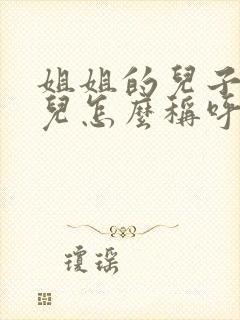 姐姐的兒子
兒怎麼稱呼
瓊瑤